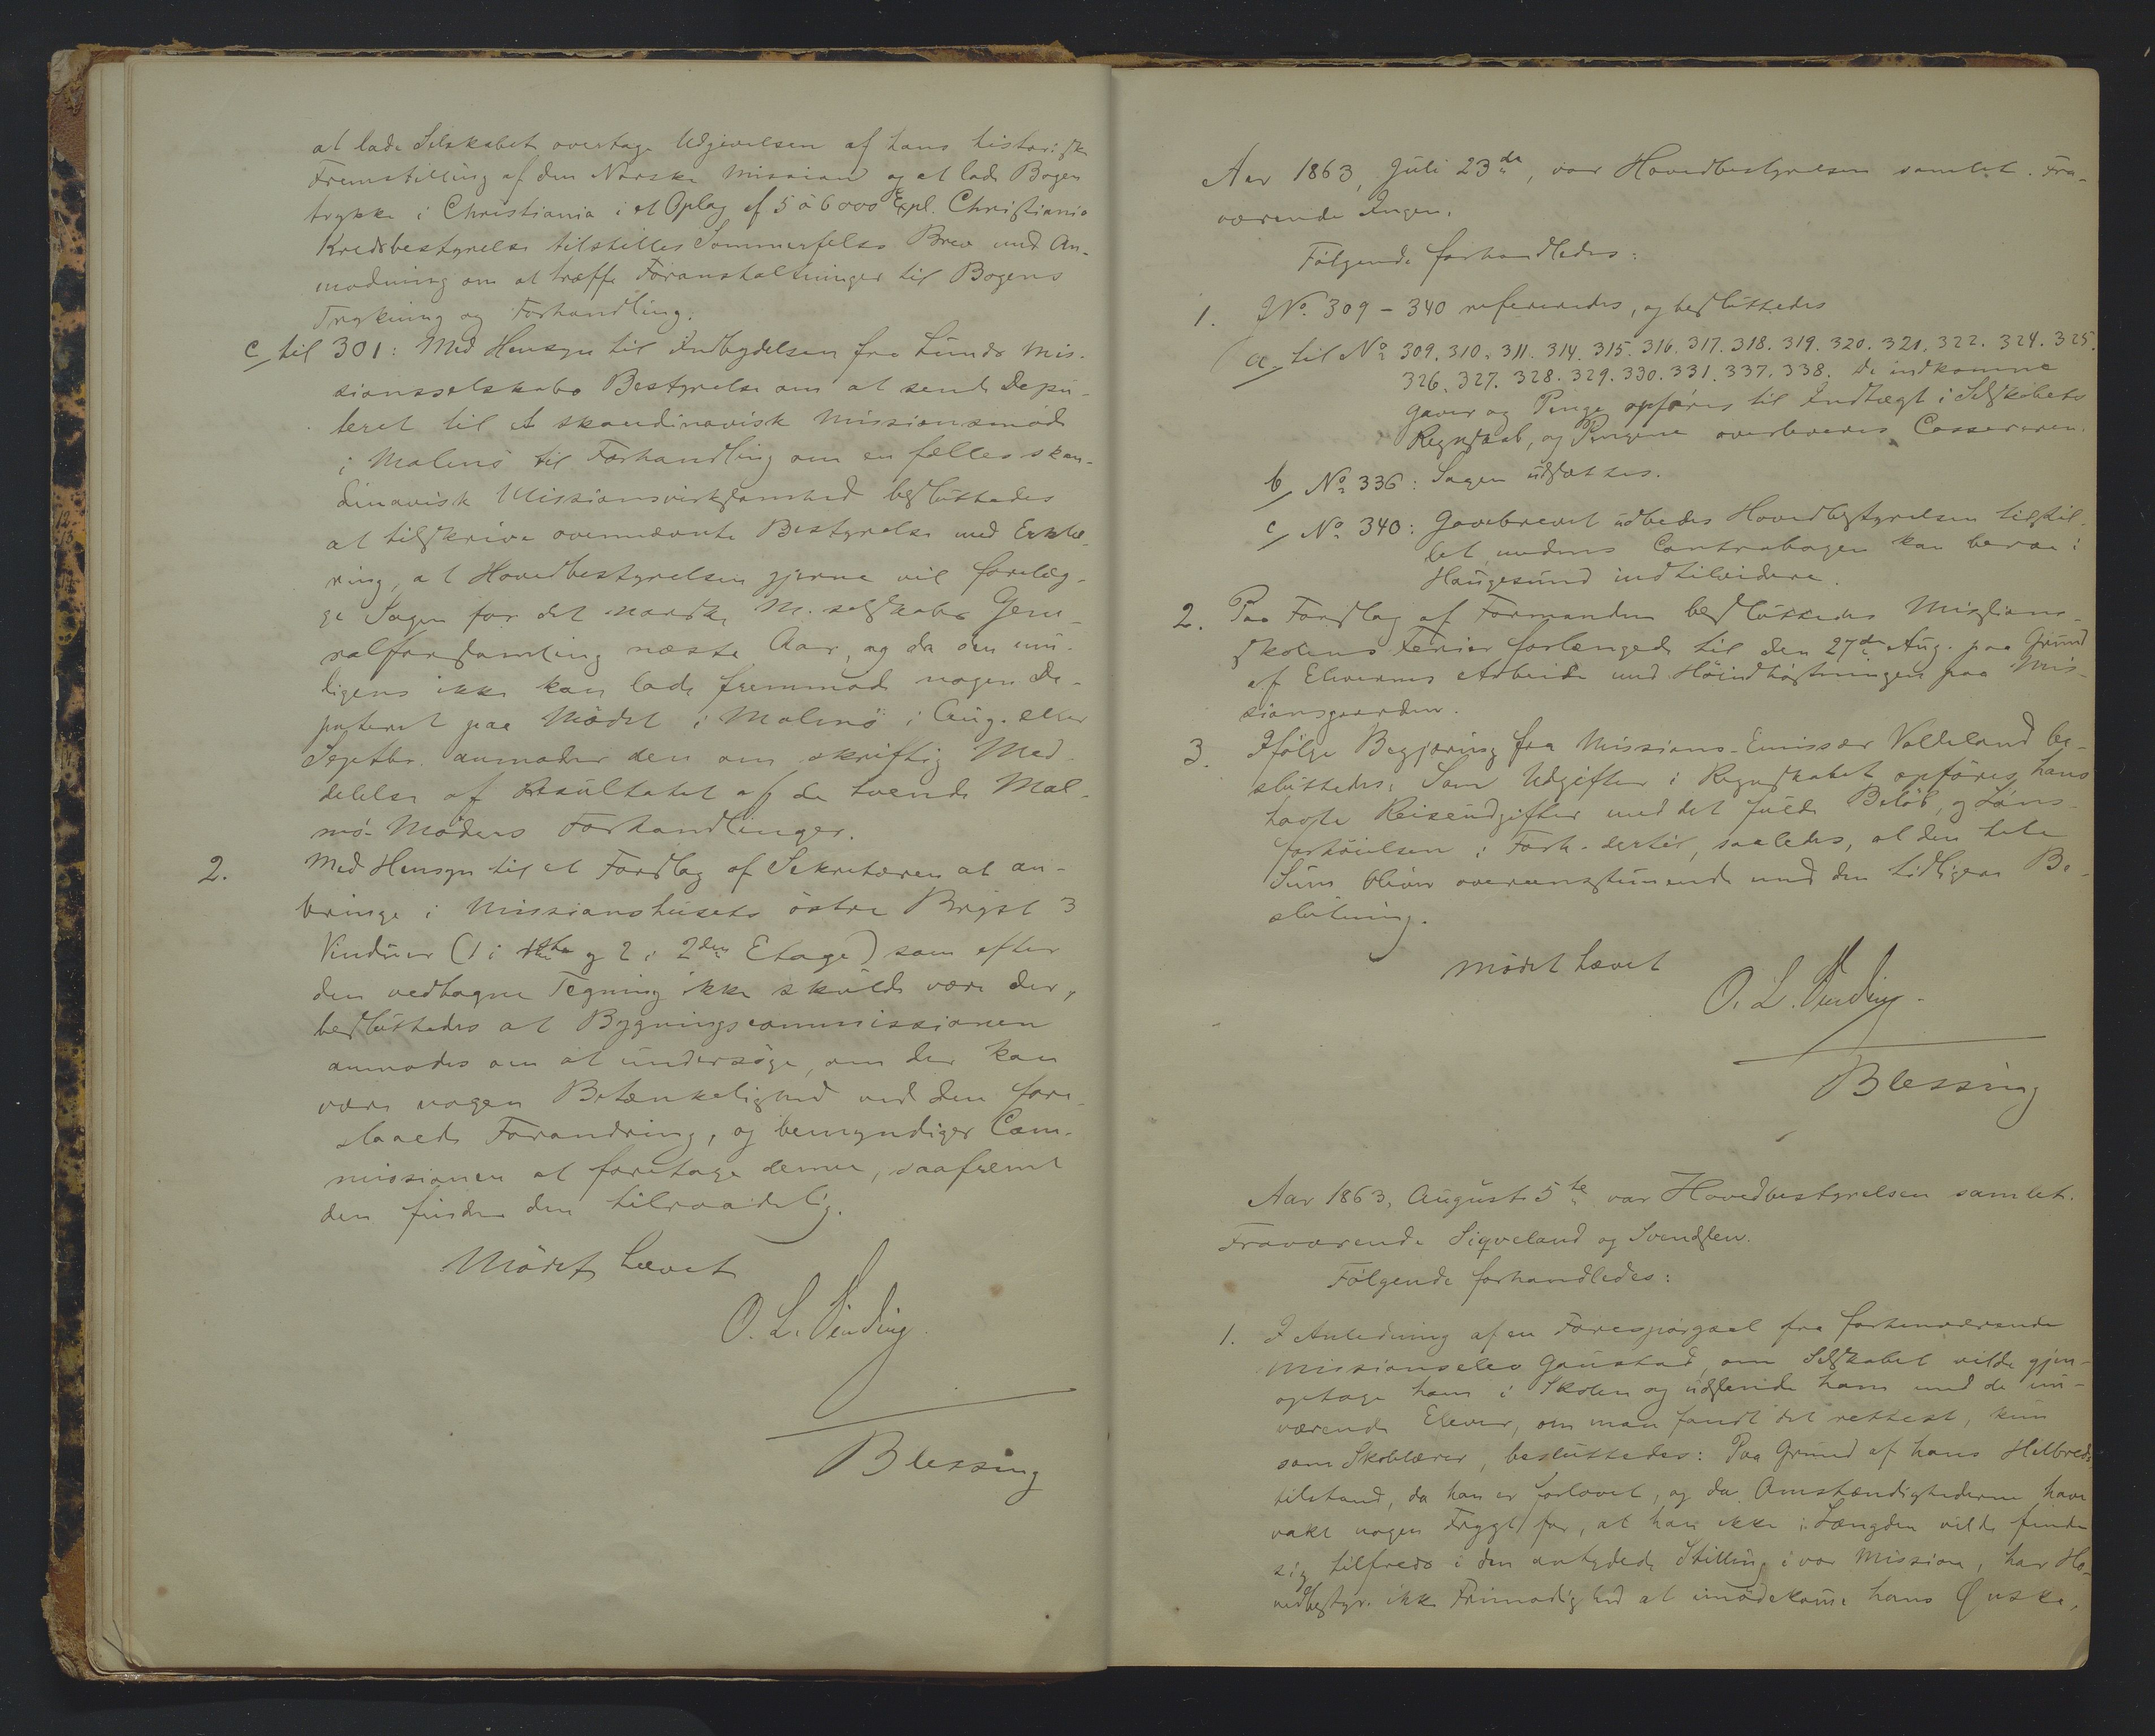 at lade Selskabet overtage Udgivelsen af hans historisk
Fremstilling af den Norske Mission og at lade Bogen
trykke i Christiania i et Oplag af 5 à 6000 Expl. Christiania
Kredsbestyrelse tilstilles Sommerfelts Brev med An-
modning om at træffe Foranstaltninger til Bogens
Trykning og Forhandling.
c/ til 301: Med Hensyn til Indbydelsen fra Lunds Mis-
sionsselskabs Bestyrelse om at sende Depu-
teret til et skandinavisk Missionsmöde
i Malmö til Forhandling om en fælles skan-
dinavisk Missionsvirksomhed besluttedes
at tilskrive ovennævnte Bestyrelse med Erklæ-
ring, at Hovedbestyrelsen gjerne vil forelæg-
ge Sagen for det norske M. selskabs Gene-
ralforsamling næste Aar, og da den imi-
digens ikke kan lade fremmöde nogen De-
puteret paa Mödet i Malmö i Aug. eller
Septbr. anmoder den om skriftlig Med-
delelse af Resultatet af de tvende Mal-
mö-Möders Forhandlinger.
2. Med Hensyn til et Forslag af Sekretæren at an-
bringe i Missionshusets östre Brÿst 3
Vinduer (1 i 1ste og 2 i 2den Etage) som efter
den vedtagne Tegning ikke skulde være der,
besluttedes at Bygningscommissionen
anmodes om at undersöge, om der kan
være nogen Betænkelighed ved den fore-
slaaede Forandring, og bemyndiger Com-
missionen at foretage denne, saafremt
den finder den tilraadelig.
Mödet hævet
O. L. Vinding.
Blessing
Aar 1863, Juli 23de, var Hovedbestyrelsen samlet. Fra-
værende Ingen.
Fölgende forhandledes:
1. J No. 309 - 340 refereredes, og besluttedes
a. til No 309. 310. 311. 314. 315. 316. 317. 318. 319. 320. 321. 322. 324. 325.
326. 327. 328. 329. 330. 331. 337. 338. De indkomne
Gaver og Penge opföres til Indtægt i Selskabets
Regnskab, og Pengene overleveres Cassereren.
b/ No 336: Sagen udsættes.
c/ No 340: Gavebrevet udbedes Hovedbestyrelsen tilstil-
let, medens Contrabogen kan beroe i
Haugesund indtilvidere.
2. Paa Forslag af Formanden besluttedes Missions-
skolens Ferier forlængede til den 27de Aug. paa Grund
af Elevernes Arbeide med Höindhöstningen paa Mis-
sionsgaarden.
3. Ifölge Begjæring fra Missions-Emissær Valleland be-
sluttedes: Som Udgifter i Regnskabet opföres hans
havte Reiseudgifter med det fulde Belöb, og Löns-
forhöielsen i Forh. dertil, saaledes, at den hele
Sum bliver overeensstemmende med den tidligere Be-
slutning.
Mödet hævet
O. L. Vinding.
Blessing
Aar 1863, August 5te var Hovedbestyrelsen samlet.
Fraværende Siqveland og Svendsen.
Fölgende forhandledes:
1. I Anledning af en Forespörgsel fra forhenværende
Missionselev Gaustad, om Selskabet vilde gjen-
optage ham i Skolen og udsende ham med de nu-
værende Elever, om man fandt det rettest, kun
som Skolelærer, besluttedes: Paa Grund af hans Helbreds-
tilstand, da han er forlovet, og da Omstændighederne have
vakt nogen Frygt for, at han ikke i Længden vilde finde
sig tilfreds i den antydede Stilling i vor Mission, har Ho-
vedbestyr. ikke Frimodighed at imödekomme hans Ønske,